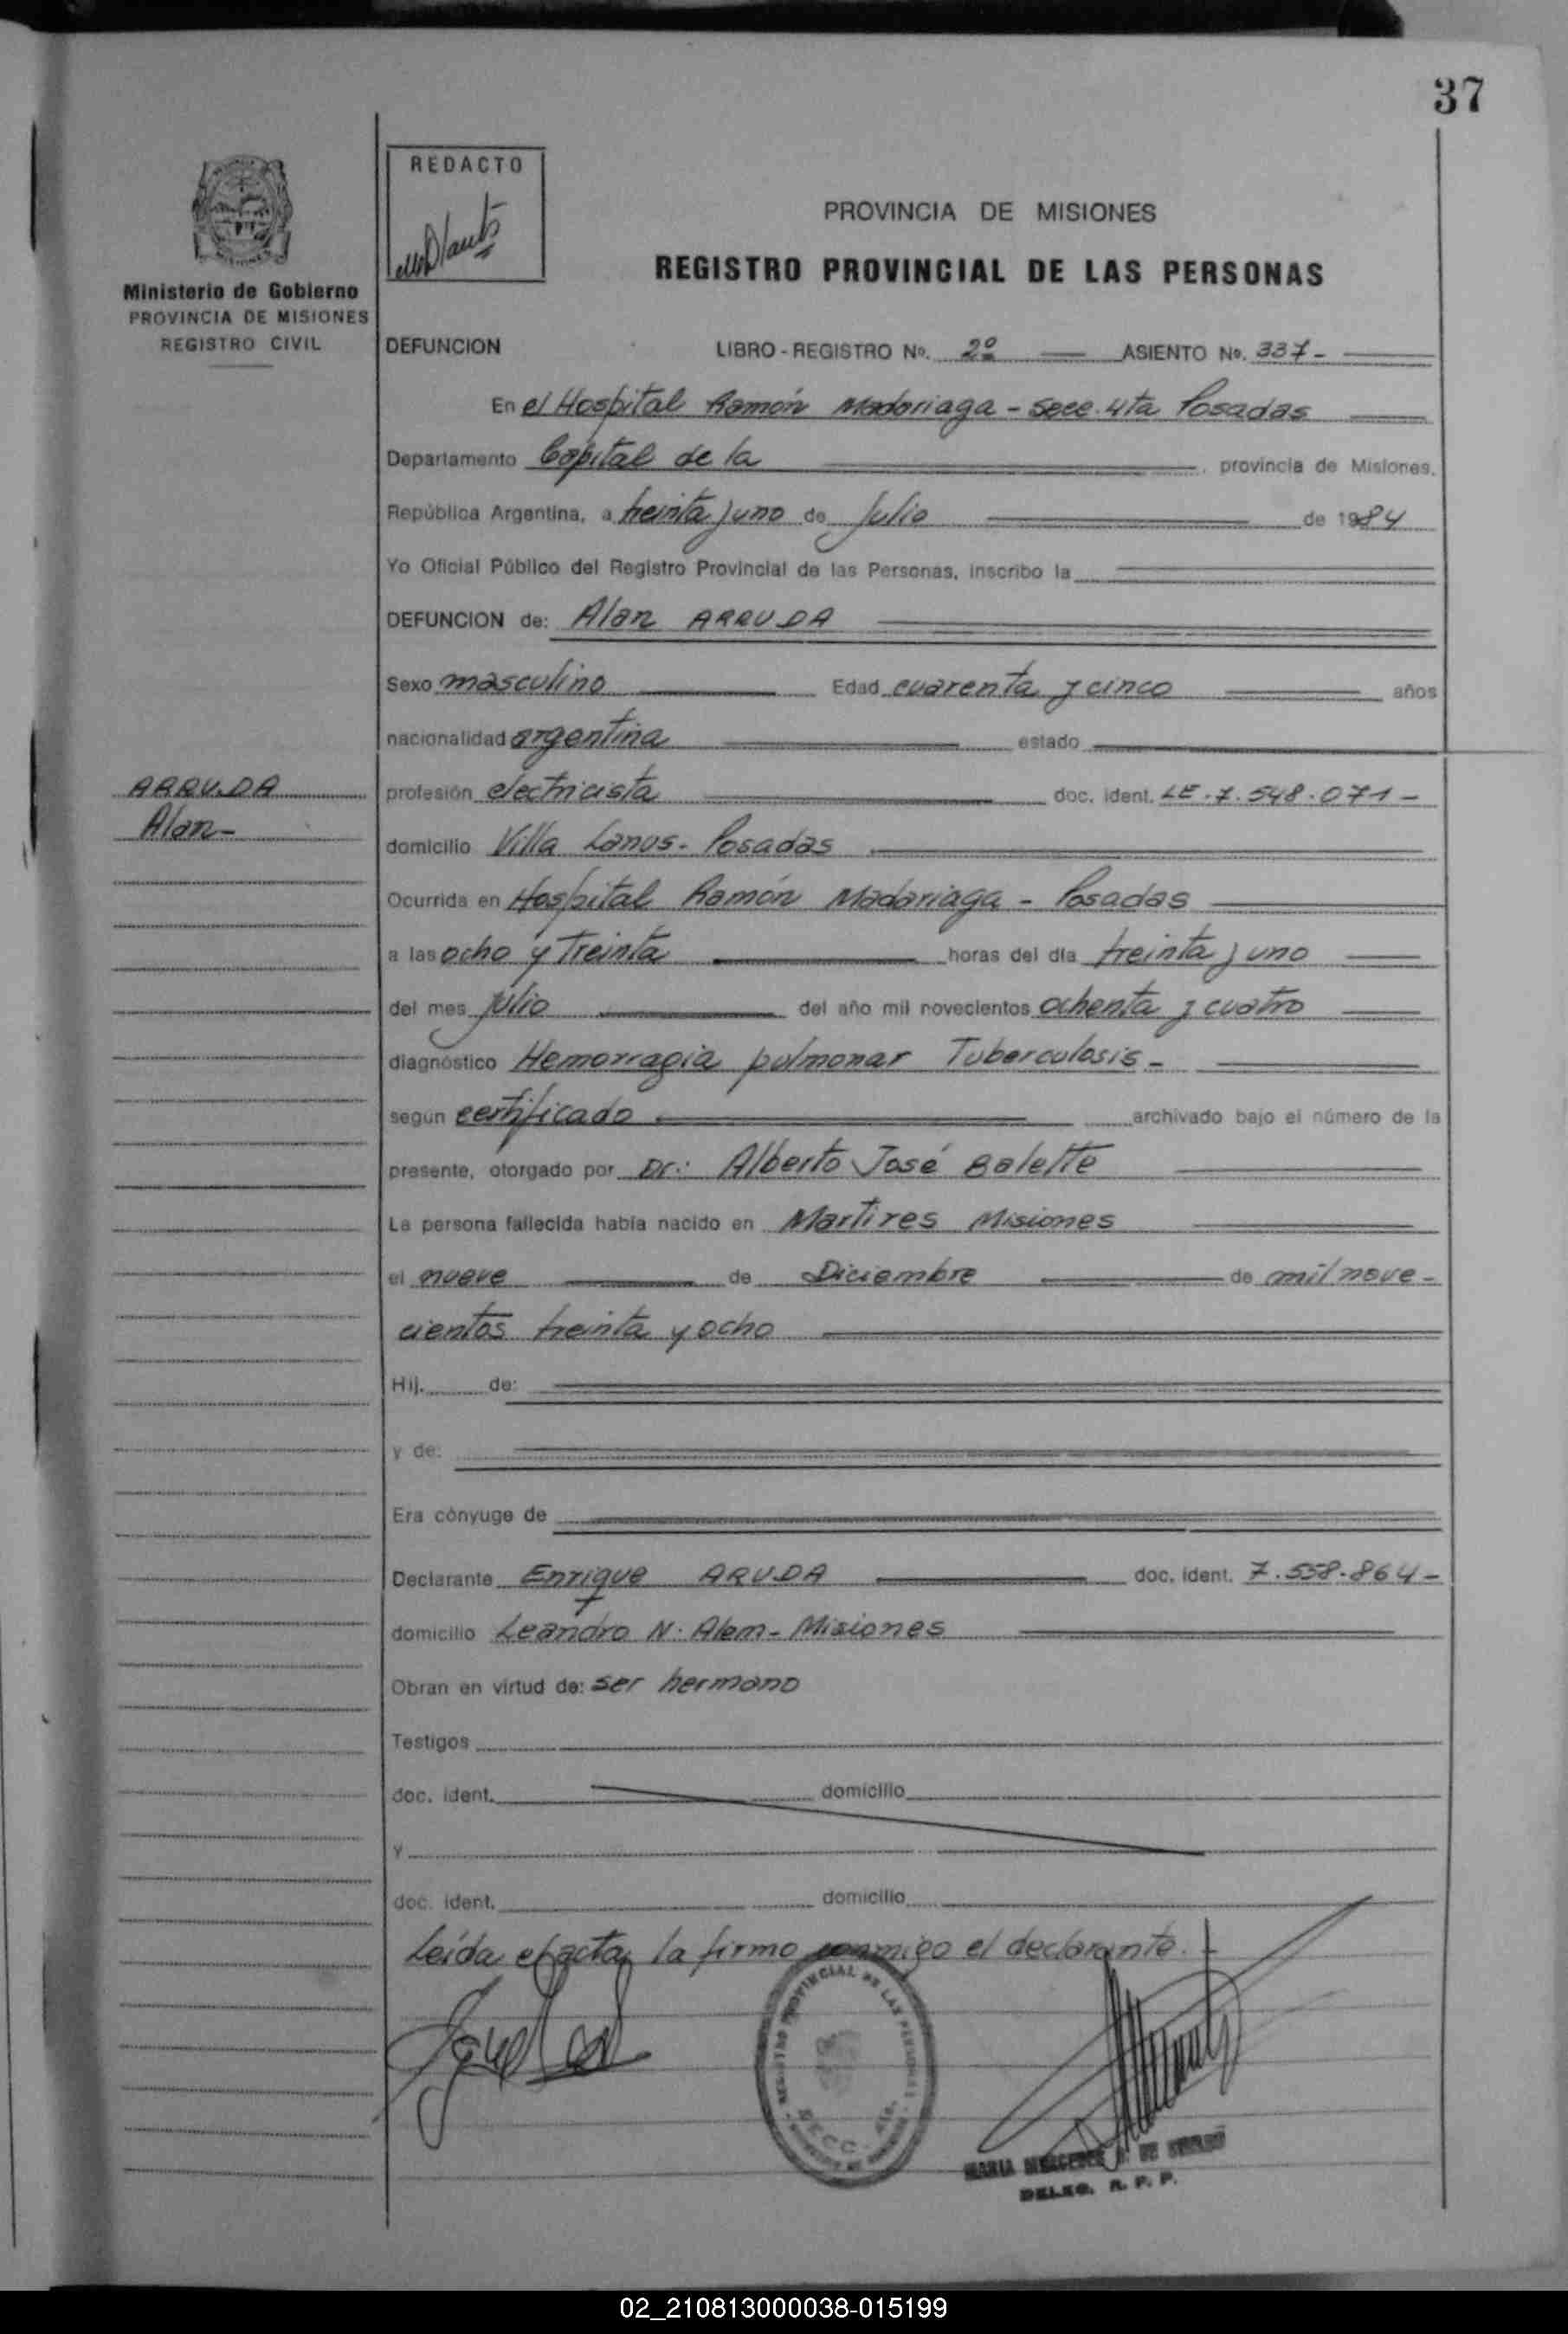 37
REDACTO
PROVINCIA DE MISIONES
REGISTRO PROVINCIAL DE LAS PERSONAS
Ministerio de Gobierno
PROVINCIA DE MISIONES
REGISTRO CIVIL
DEFUNCION LIBRO - REGISTRO Nº. 2º ASIENTO Nº. 337 -
En el Hospital Ramón Madariaga - Secc. 4ta Posadas
Departamento Capital de la , provincia de Misiones,
República Argentina, a treinta y uno de Julio de 1984
Yo Oficial Público del Registro Provincial de las Personas, inscribo la
DEFUNCION de: Alan ARRUDA
Sexo masculino Edad cuarenta y cinco años
nacionalidad argentina estado
ARRUDA
Alan -
profesión electricista doc. ident. LE. 7.548.071 -
domicilio Villa Lanus - Posadas
Ocurrida en Hospital Ramón Madariaga - Posadas
a las ocho y treinta horas del día treinta y uno
del mes julio del año mil novecientos ochenta y cuatro
diagnóstico Hemorragia pulmonar Tuberculosis -
según certificado archivado bajo el número de la
presente, otorgado por Dr.: Alberto José Balette
La persona fallecida había nacido en Martires Misiones
el nueve de Diciembre de mil nove-
cientos treinta y ocho
Hij. de:
y de:
Era cónyuge de
Declarante Enrique ARUDA doc. ident. 7.558.864 -
domicilio Leandro N. Alem - Misiones
Obran en virtud de: ser hermano
Testigos
doc. ident. domicilio
y
doc. ident. domicilio
Leída el acta, la firmo conmigo el declarante. -
REGISTRO PROVINCIAL DE LAS PERSONAS
SECC. 4ta.
MARIA MERCEDES DE
DELEG. R. P. P.
02_210813000038-015199